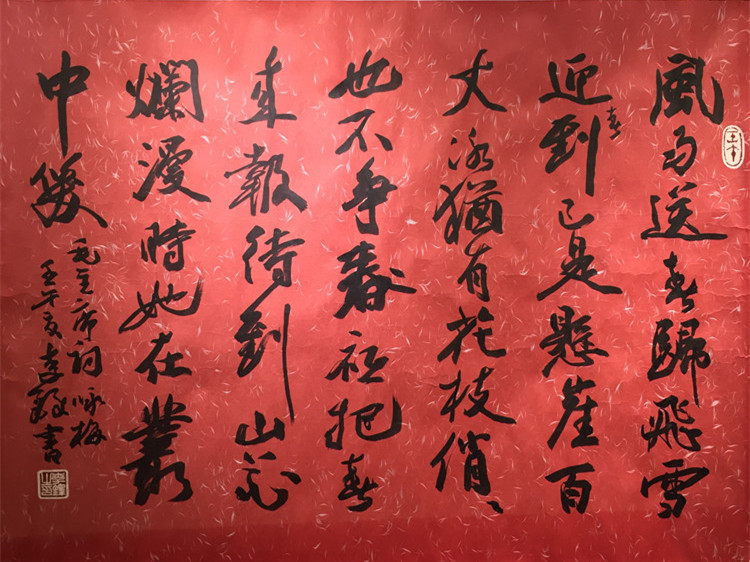 風雨送春歸飛雪
迎春到已是懸崖百
丈冰猶有花枝俏〻
也不爭春祇把春
来報待到山花
爛漫時她在叢
中笑
毛主席词咏梅
壬午夏李書